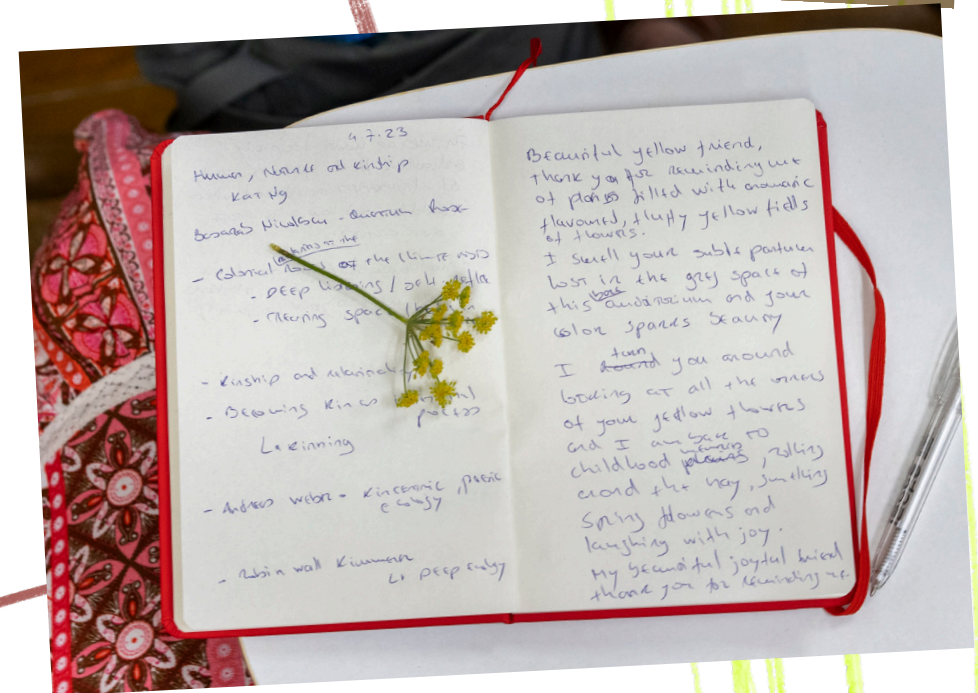 4.7.23
Human, Nature and kinship
Kat Ng
Basarab Nicolescu - Quantum
- Colonial of the climate crisis
- DEEP listening / self
- space
- Kinship and
- Becoming Kin
process
L Kinning
- Andreas Weber - Kincentric, poetic
ecology
- Robin Wall Kimmerer
L DEEP Ecology
Beautiful yellow friend,
thank you for reminding me
of plains filled with aromatic
flavoured, fluffy yellow fields
of flowers.
I smell your subtle parfume
lost in the grey space of
this auditorium and your
color sparks beauty
I turn you around
looking at all the
of your yellow flowers
and I am back to
childhood memories, rolling
around the hay, smelling
spring flowers and
laughing with joy.
My beautiful joyful friend
thank you for reminding me.